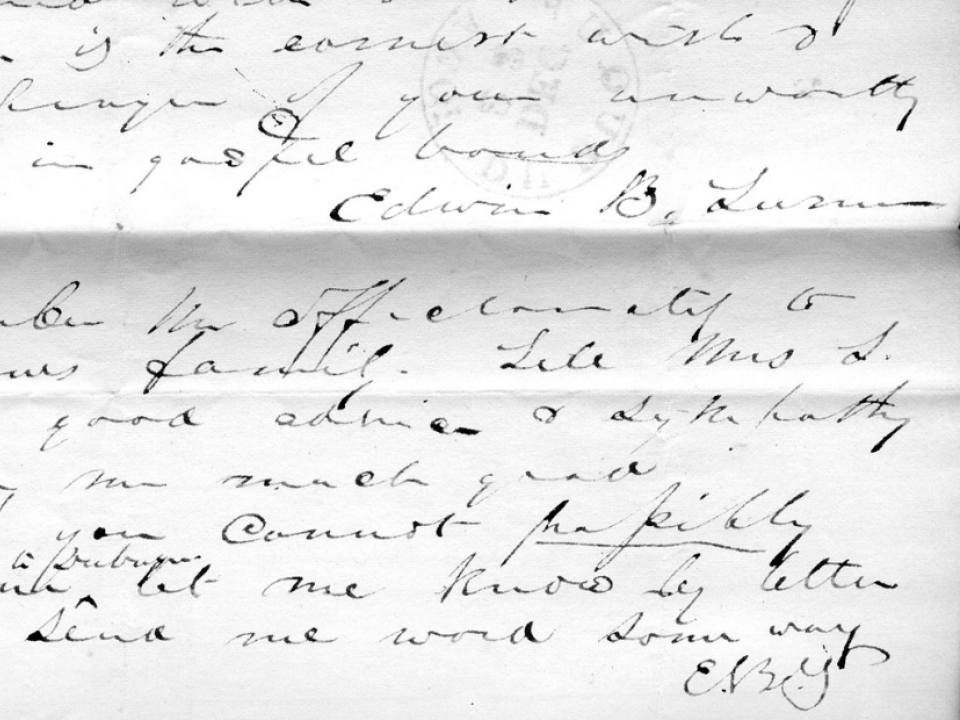 is the earnest wish &
prayer of your unworthy
in gospel bonds
Edwin B. Turner
me affectionately to
family. Tell Mrs L.
good advice & sympathy
me much good
you cannot possibly
to Dubuque
let me know by letter
send me word some way
E.B.